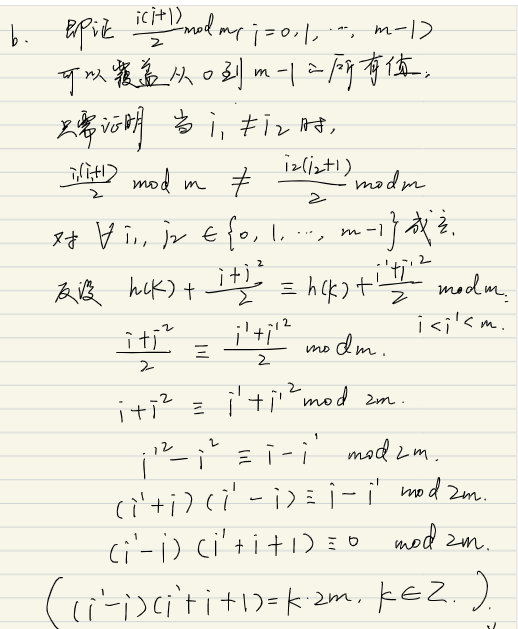 b. 即证 i(i+1)/2 mod m, i=0,1,…, m-1)
可以覆盖从0到m-1之所有值,
只需证明 当 i₁ ≠ i₂ 时,
i₁(i₁+1)/2 mod m ≠ i₂(i₂+1)/2 mod m
对 ∀ i₁, i₂ ∈ {0, 1, …, m-1} 成立.
反设 h(k) + (i+i²)/2 ≡ h(k) + (i'+i'²)/2 mod m.
i < i' < m.
(i+i²)/2 ≡ (i'+i'²)/2 mod m.
i+i² ≡ i'+i'² mod 2m.
i'²-i² ≡ i-i' mod 2m.
(i'+i)(i'-i) ≡ i-i' mod 2m.
(i'-i)(i'+i+1) ≡ 0 mod 2m.
((i'-i)(i'+i+1) = k·2m, k∈Z.)